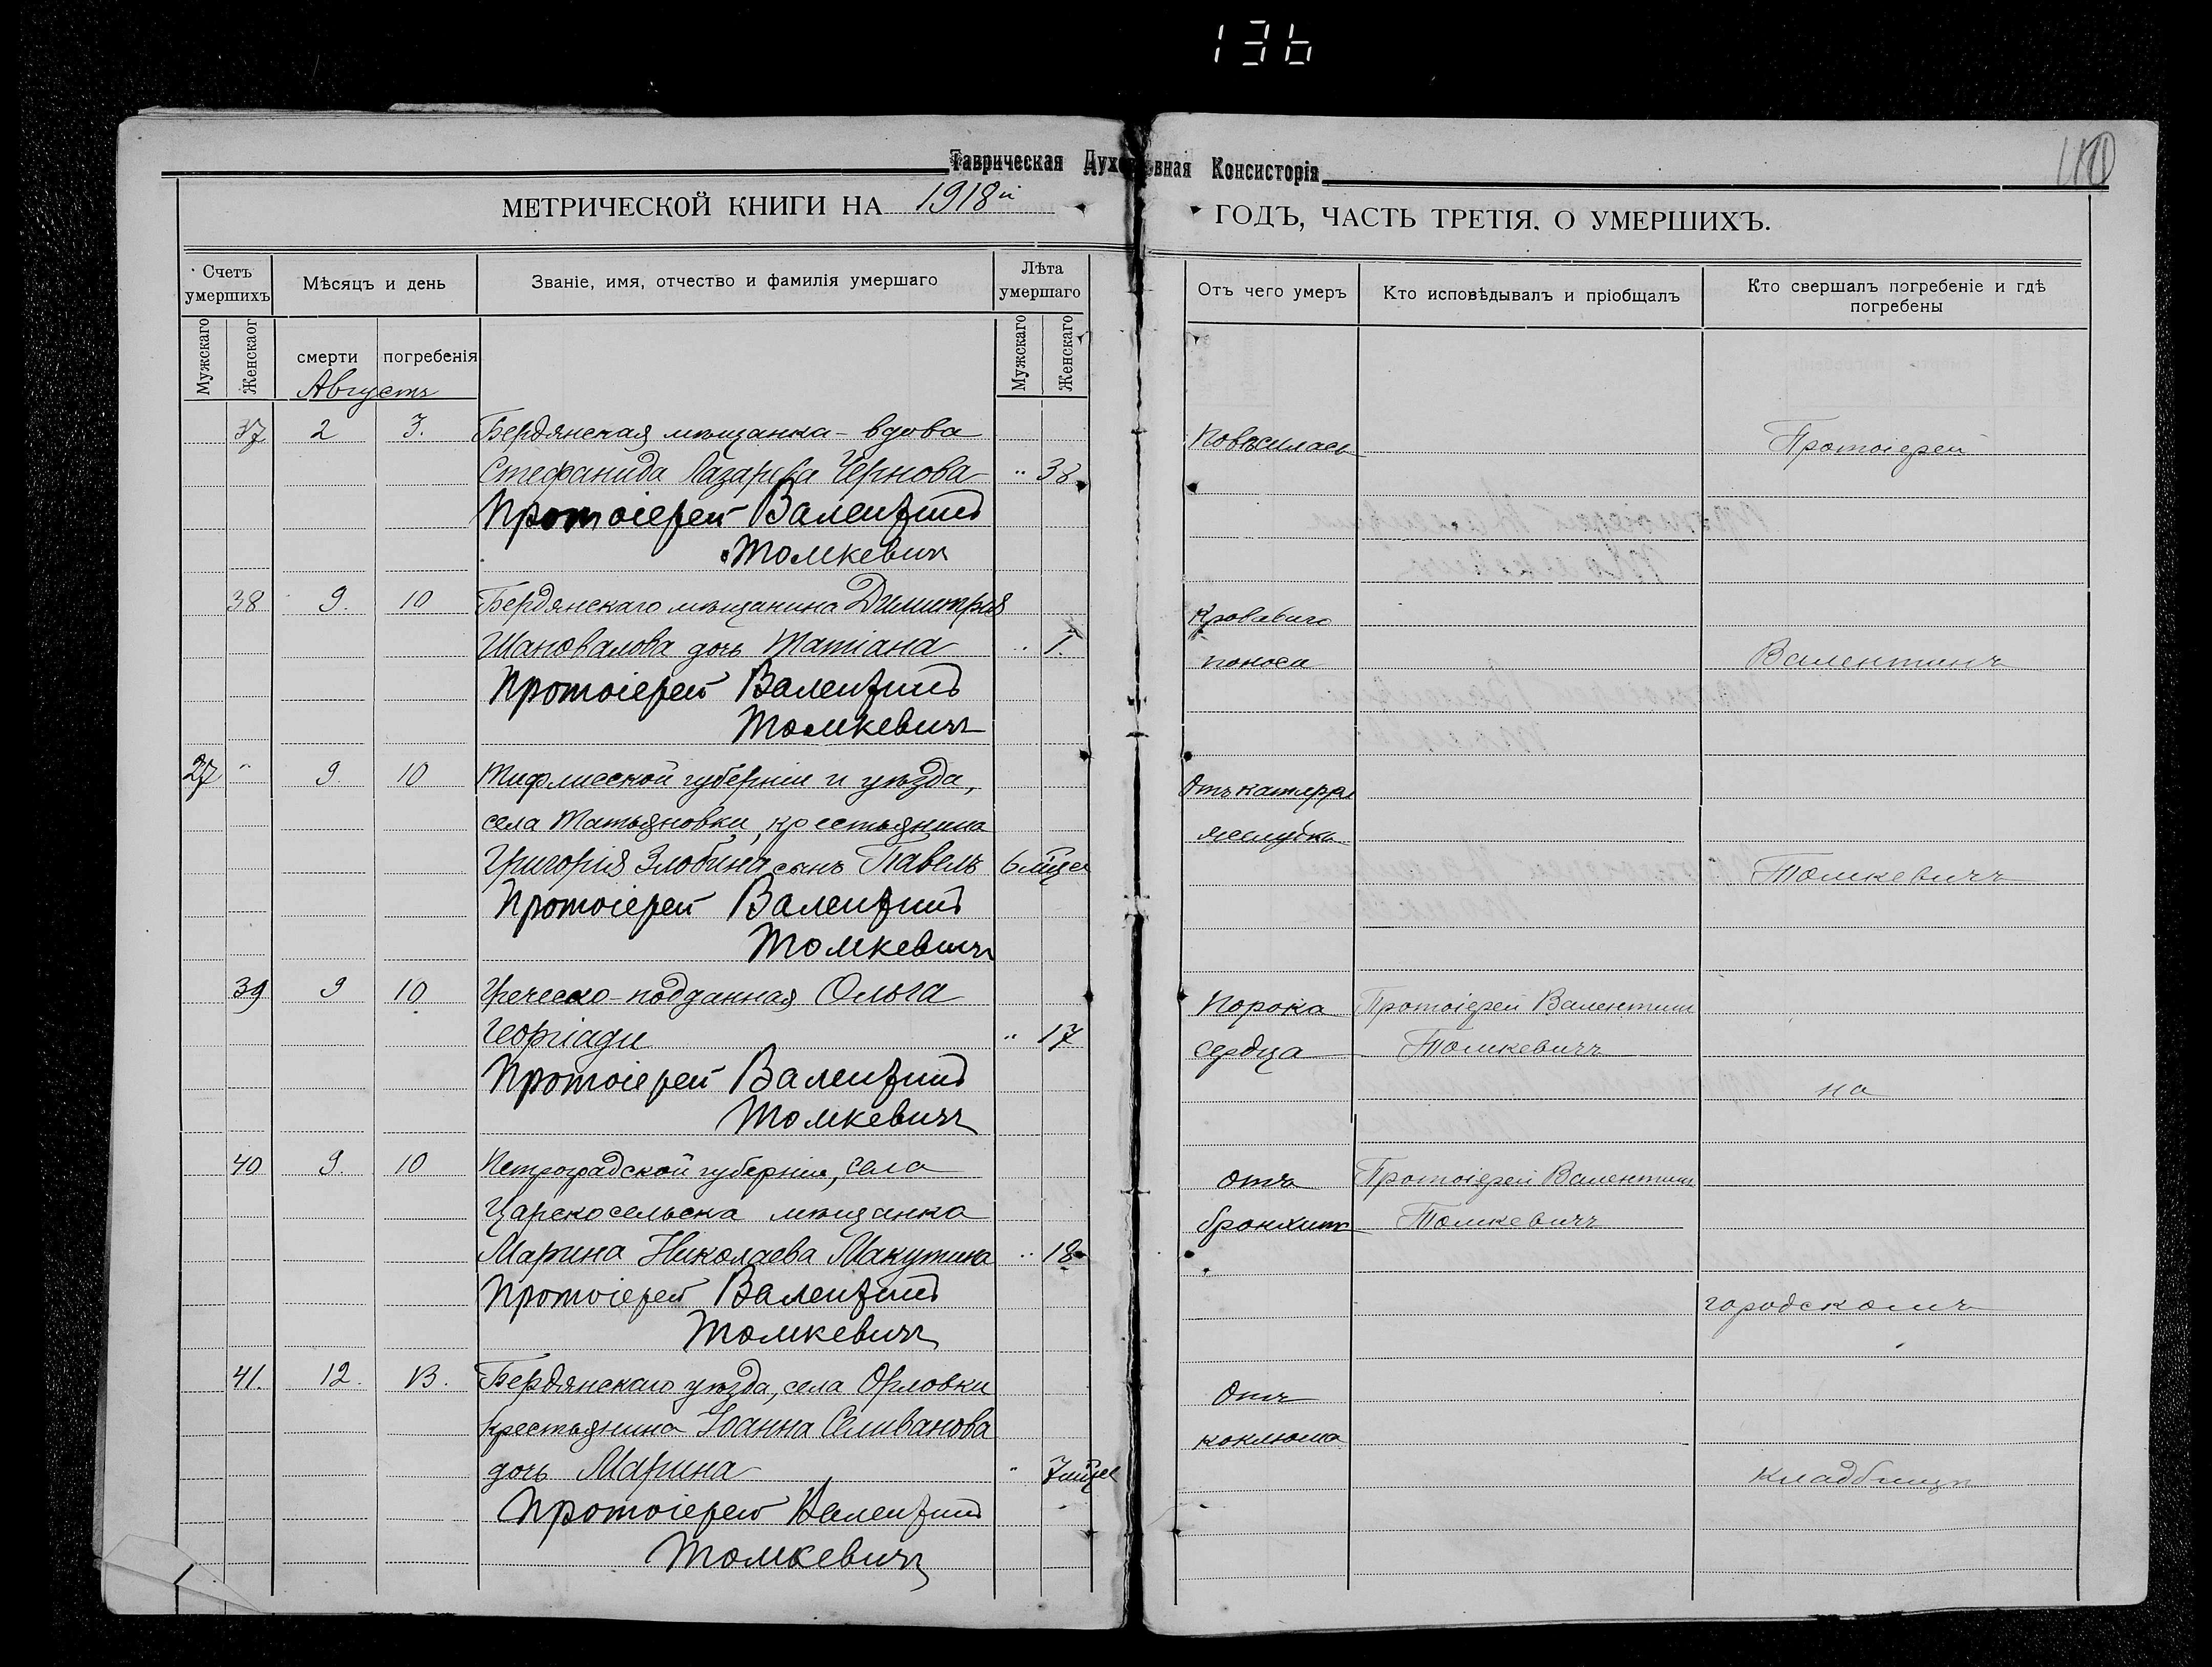 136
Таврическая Духовная Консисторія
МЕТРИЧЕСКОЙ КНИГИ НА 1918й
ГОДЪ, ЧАСТЬ ТРЕТІЯ. О УМЕРШИХЪ.
Счетъ умершихъ
Мѣсяцъ и день
Званіе, имя, отчество и фамилія умершаго
Лѣта умершаго
Отъ чего умеръ
Кто исповѣдывалъ и пріобщалъ
Кто свершалъ погребеніе и гдѣ погребены
Мужскаго
Женскаог
смерти
погребенія
Мужскаго
Женскаго
Августъ
37 2 3. Бердянская мѣщанка - вдова Повѣсилась Протоіерей
Стефанида Лазарева Чернова " 38
Протоіерей Валентинъ
Томкевичъ
38 9. 10 Бердянскаго мѣщанина Димитрія Кроваваго
Шаповалова дочь Татіана " 1. поноса Валентинъ
Протоіерей Валентинъ
Томкевичъ
27 " 9. 10 Тифлисской губерніи и уѣзда, Отъ катарра
села Татьяновки, крестьянина желудка
Григорія Злобина сынъ Павелъ 6 мѣся Томкевичъ
Протоіерей Валентинъ
Томкевичъ
39 9 10 Греческо-подданная Ольга Порока Протоіерей Валентинъ
Георгіади " 17 сердца Томкевичъ
Протоіерей Валентинъ на
Томкевичъ
40 9. 10 Петроградской губерніи, села отъ Протоіерей Валентинъ
Царскосельска мѣщанка бронхит Томкевичъ
Марина Николаева Макутина " 18
Протоіерей Валентинъ городскомъ
Томкевичъ
41. 12. 13. Бердянскаго уѣзда, села Орловки Отъ
крестьянина Іоанна Селиванова коклюша
дочь Марина " 7 мѣся кладбищѣ
Протоіерей Валентинъ
Томкевичъ